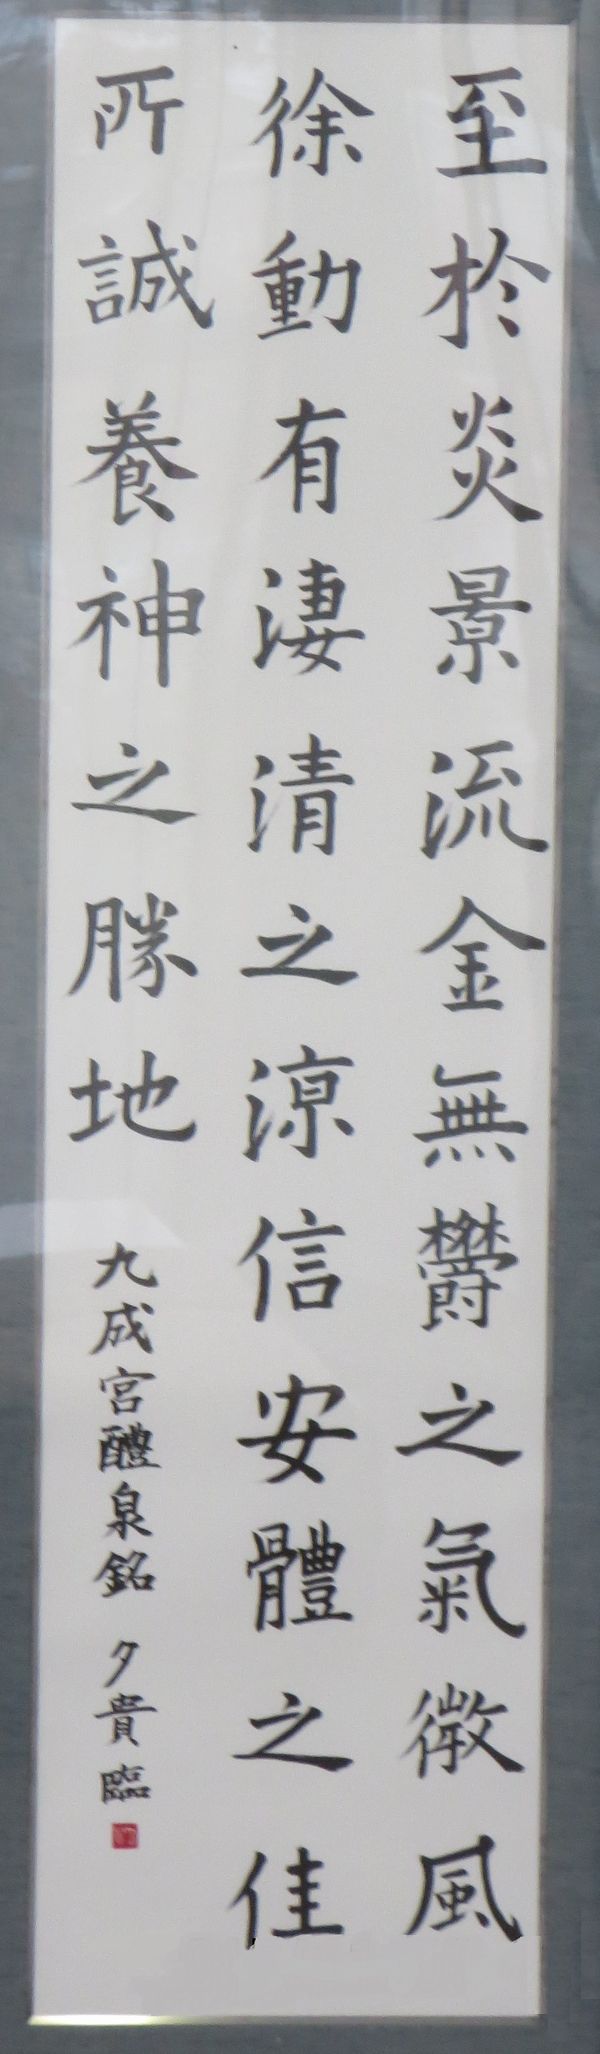 至於炎景流金無欝之氣微風
徐動有淒清之涼信安體之佳
所誠養神之勝地
九成宮醴泉銘 夕貴臨